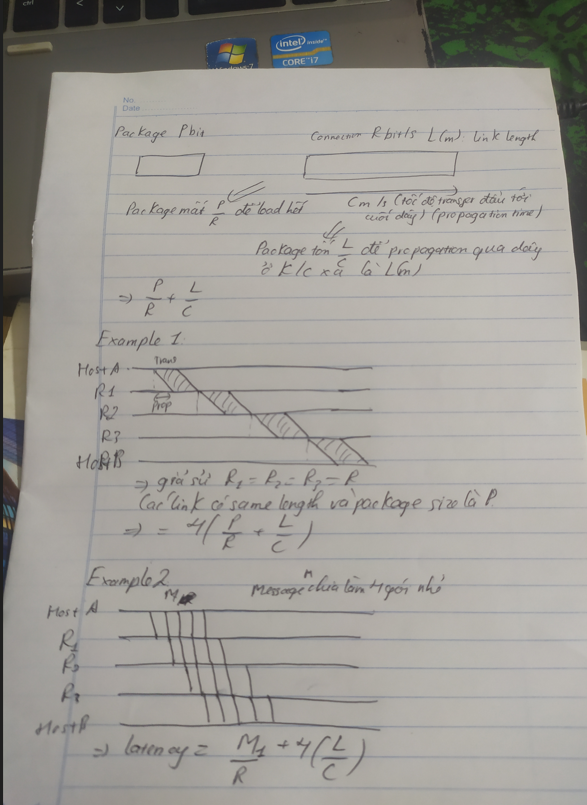 ctrl
Windows 7
intel inside™
CORE™ i7
No.
Date
Package Pbit
Connection Rbit/s L(m): link length
Package mất P/R để load hết
C m/s (tốc độ transfer đầu tới
cuối dây) (propagation time)
Package tốn L/C để propagation qua dây
ở K/c xa là L(m)
⇒ P/R + L/C
Example 1:
Trans
Host A
R1
Prop
R2
R3
Host B
⇒ giả sử R1 = R2 = R3 = R
Các link có same length và package size là P.
⇒ = 4(P/R + L/C)
Example 2
Message chia làm 4 gói nhỏ
Host A
R1
R2
R3
Host B
⇒ latency = M1/R + 4(L/C)